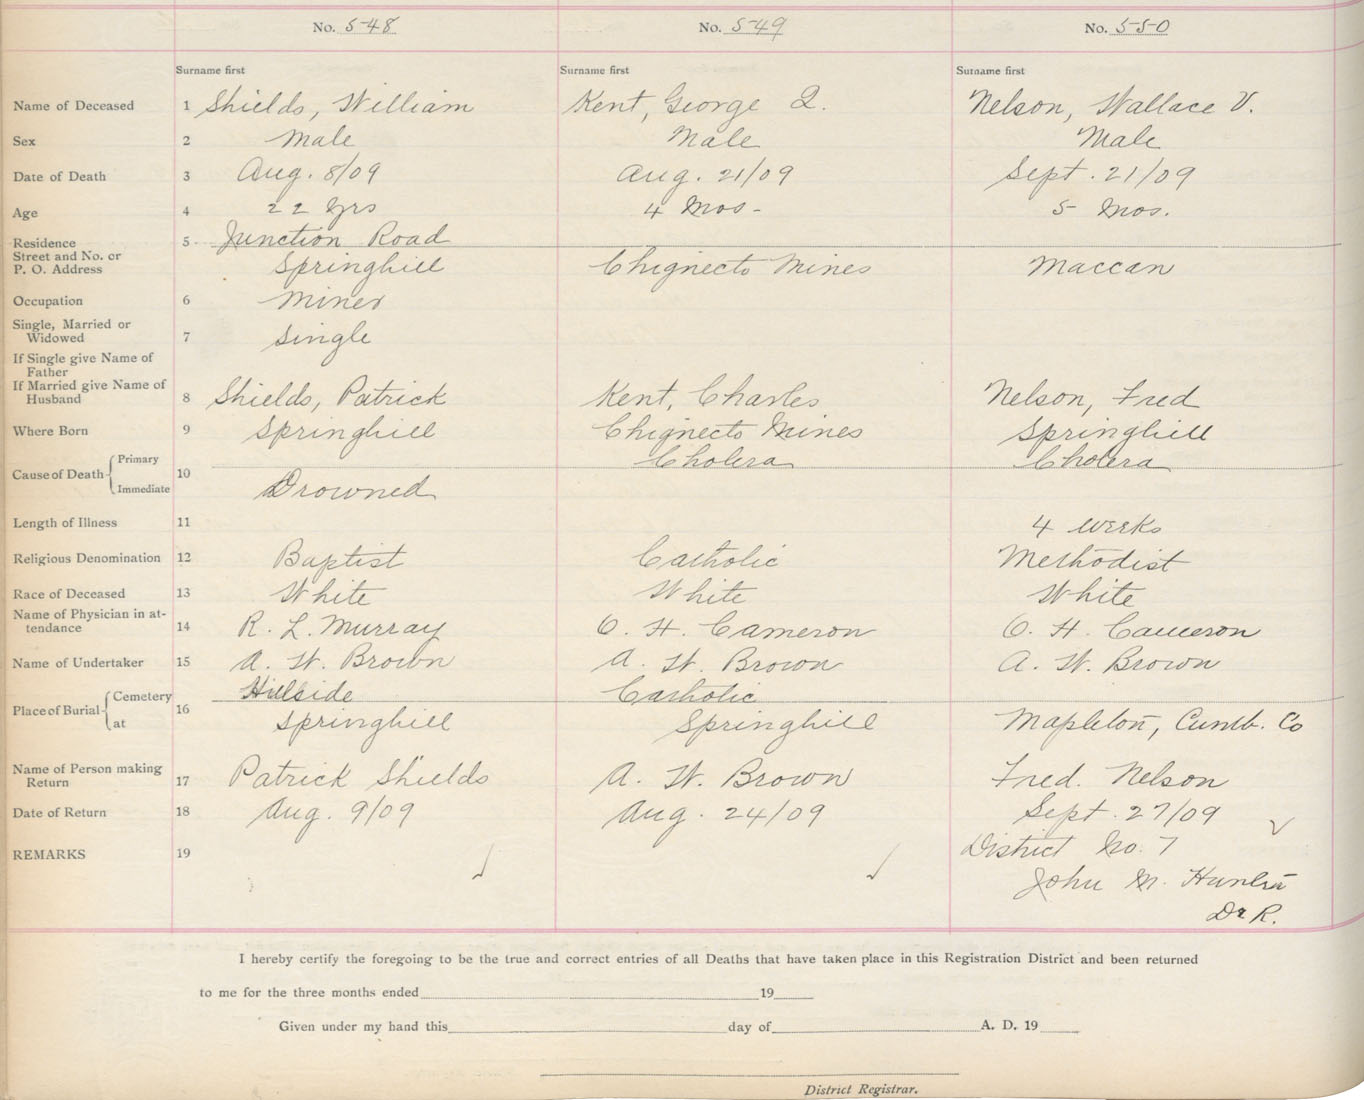 No. 548 No. 549 No. 550
Surname first Surname first Surname first
Name of Deceased 1 Shields, William Kent, George Q. Nelson, Wallace V.
Sex 2 Male Male Male
Date of Death 3 Aug. 8/09 Aug. 21/09 Sept. 21/09
Age 4 22 yrs 4 Mos- 5 Mos.
Residence 5 Junction Road
Street and No. or
P. O. Address Springhill Chignecto Mines Maccan
Occupation 6 Miner
Single, Married or
Widowed 7 Single
If Single give Name of
Father
If Married give Name of
Husband 8 Shields, Patrick Kent, Charles Nelson, Fred
Where Born 9 Springhill Chignecto Mines Springhill
Cause of Death Primary 10 Cholera Cholera
Immediate Drowned
Length of Illness 11 4 weeks
Religious Denomination 12 Baptist Catholic Methodist
Race of Deceased 13 White White White
Name of Physician in at-
tendance 14 R. L. Murray C. H. Cameron C. H. Cameron
Name of Undertaker 15 A. W. Brown A. W. Brown A. W. Brown
Place of Burial Cemetery 16 Hillside Catholic
at Springhill Springhill Mapleton, Cumb. Co
Name of Person making
Return 17 Patrick Shields A. W. Brown Fred. Nelson
Date of Return 18 Aug. 9/09 Aug. 24/09 Sept. 27/09
REMARKS 19 District No. 7
John M. Hunter
D R.
I hereby certify the foregoing to be the true and correct entries of all Deaths that have taken place in this Registration District and been returned
to me for the three months ended 19
Given under my hand this day of A. D. 19
District Registrar.